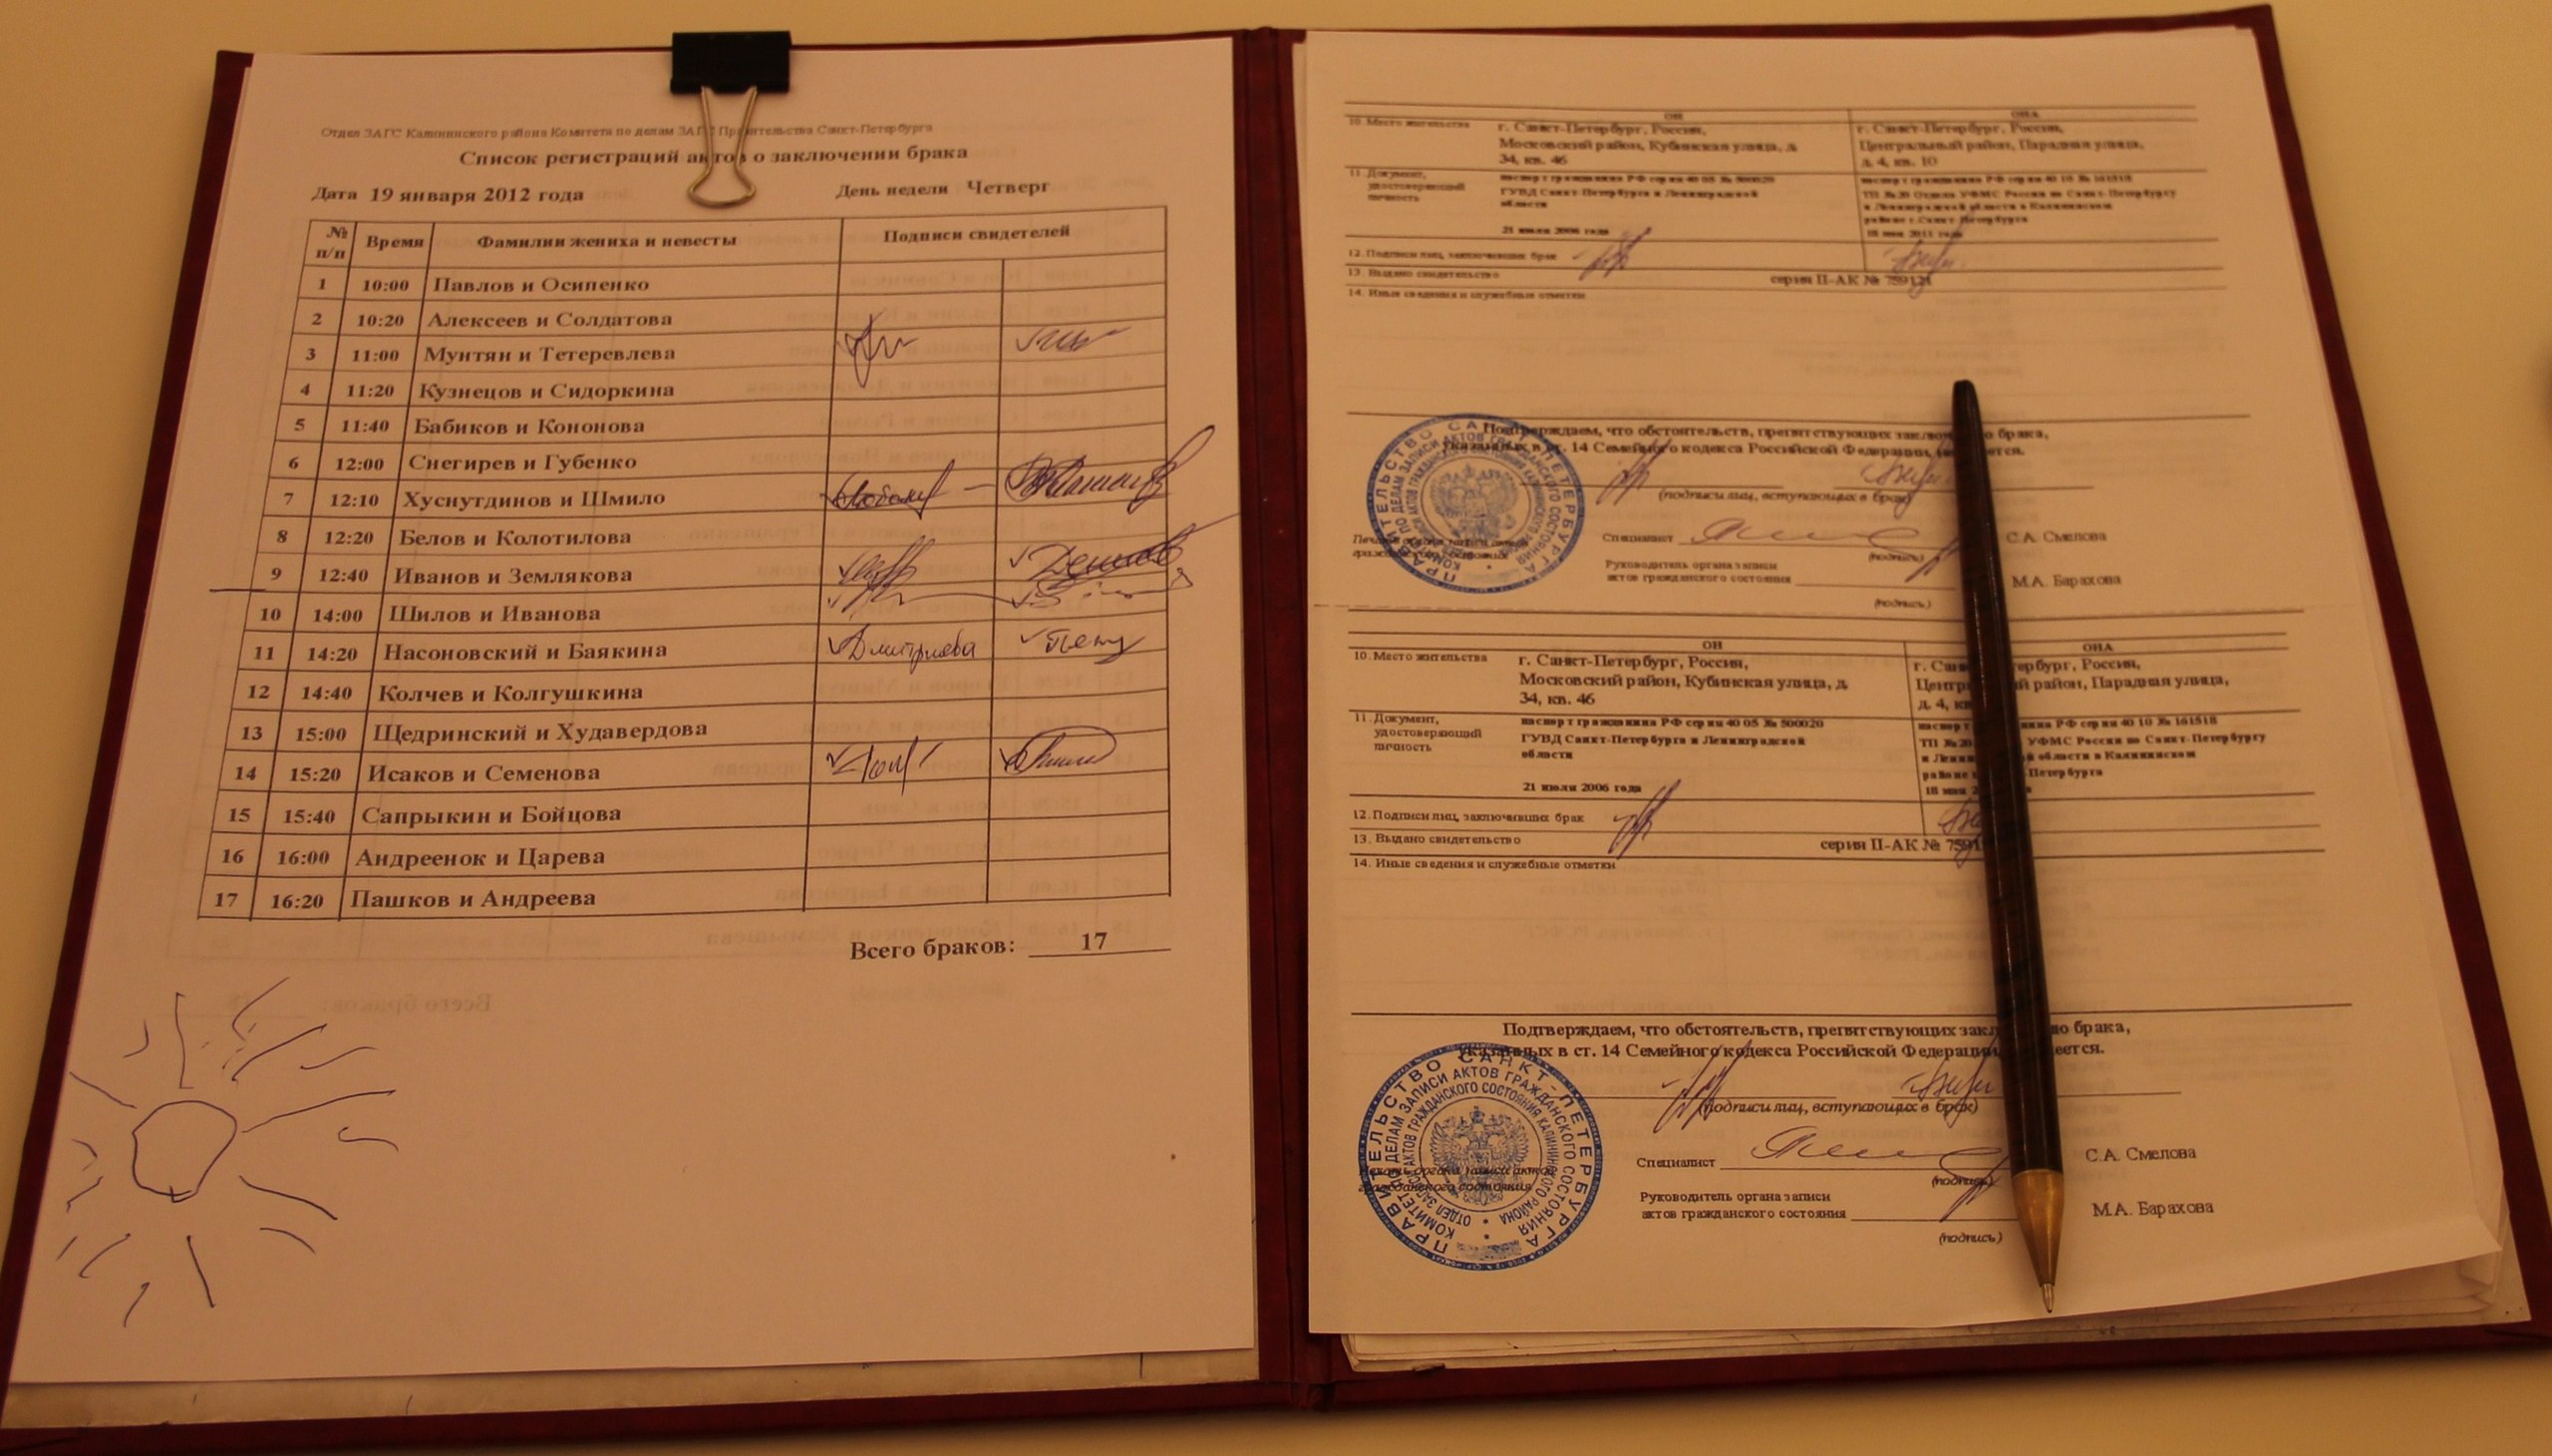 Отдел ЗАГС Калининского района Комитета по делам ЗАГС Правительства Санкт-Петербурга
Список регистраций актов о заключении брака
Дата 19 января 2012 года День недели Четверг
№ п/п Время Фамилии жениха и невесты Подписи свидетелей
1 10:00 Павлов и Осипенко
2 10:20 Алексеев и Солдатова
3 11:00 Мунтян и Тетеревлева
4 11:20 Кузнецов и Сидоркина
5 11:40 Бабиков и Кононова
6 12:00 Снегирев и Губенко
7 12:10 Хуснутдинов и Шмило
8 12:20 Белов и Колотилова
9 12:40 Иванов и Землякова
10 14:00 Шилов и Иванова
11 14:20 Насоновский и Баякина Дмитриева
12 14:40 Колчев и Колгушкина
13 15:00 Щедринский и Худавердова
14 15:20 Исаков и Семенова
15 15:40 Сапрыкин и Бойцова
16 16:00 Андреенок и Царева
17 16:20 Пашков и Андреева
Всего браков: 17
ОН ОНА
10. Место жительства г. Санкт-Петербург, Россия, г. Санкт-Петербург, Россия,
Московский район, Кубинская улица, д. Центральный район, Парадная улица,
34, кв. 46 д. 4, кв. 10
11. Документ, паспорт гражданина РФ серии 40 05 № 500020 паспорт гражданина РФ серии 40 10 № 161518
удостоверяющий ГУВД Санкт-Петербурга и Ленинградской ТП №20 Отдела УФМС России по Санкт-Петербургу
личность области и Ленинградской области в Калининском
районе г. Санкт-Петербурга
21 июля 2006 года 18 мая 2011 года
12. Подписи лиц, заключивших брак
13. Выдано свидетельство серия II-АК № 759121
14. Иные сведения и служебные отметки
Подтверждаем, что обстоятельств, препятствующих брака,
указанных в ст. 14 Семейного кодекса Российской Федерации,
(подписи лиц, вступающих в брак)
Печать органа записи актов
гражданского состояния
Специалист С.А. Смелова
(подпись)
Руководитель органа записи
актов гражданского состояния М.А. Барахова
(подпись)
ПРАВИТЕЛЬСТВО САНКТ-ПЕТЕРБУРГА
КОМИТЕТ ПО ДЕЛАМ ЗАПИСИ АКТОВ ГРАЖДАНСКОГО СОСТОЯНИЯ
ОН ОНА
10. Место жительства г. Санкт-Петербург, Россия, г. Россия,
Московский район, Кубинская улица, д. район, Парадная улица,
34, кв. 46 д. 4,
11. Документ, паспорт гражданина РФ серии 40 05 № 500020 РФ серии 40 10 № 161518
удостоверяющий ГУВД Санкт-Петербурга и Ленинградской ТП УФМС России по Санкт-Петербургу
личность области области в Калининском
районе
21 июля 2006 года 18 мая
12. Подписи лиц, заключивших брак
13. Выдано свидетельство серия II-АК №
14. Иные сведения и служебные отметки
Подтверждаем, что обстоятельств, препятствующих брака,
указанных в ст. 14 Семейного кодекса Российской Федерации,
(подписи лиц, вступающих в брак)
Печать органа записи актов
гражданского состояния
Специалист С.А. Смелова
(подпись)
Руководитель органа записи
актов гражданского состояния М.А. Барахова
(подпись)
ПРАВИТЕЛЬСТВО САНКТ-ПЕТЕРБУРГА
КОМИТЕТ ПО ДЕЛАМ ЗАПИСИ АКТОВ ГРАЖДАНСКОГО СОСТОЯНИЯ
ОТДЕЛ ЗАПИСИ АКТОВ ГРАЖДАНСКОГО СОСТОЯНИЯ КАЛИНИНСКОГО РАЙОНА